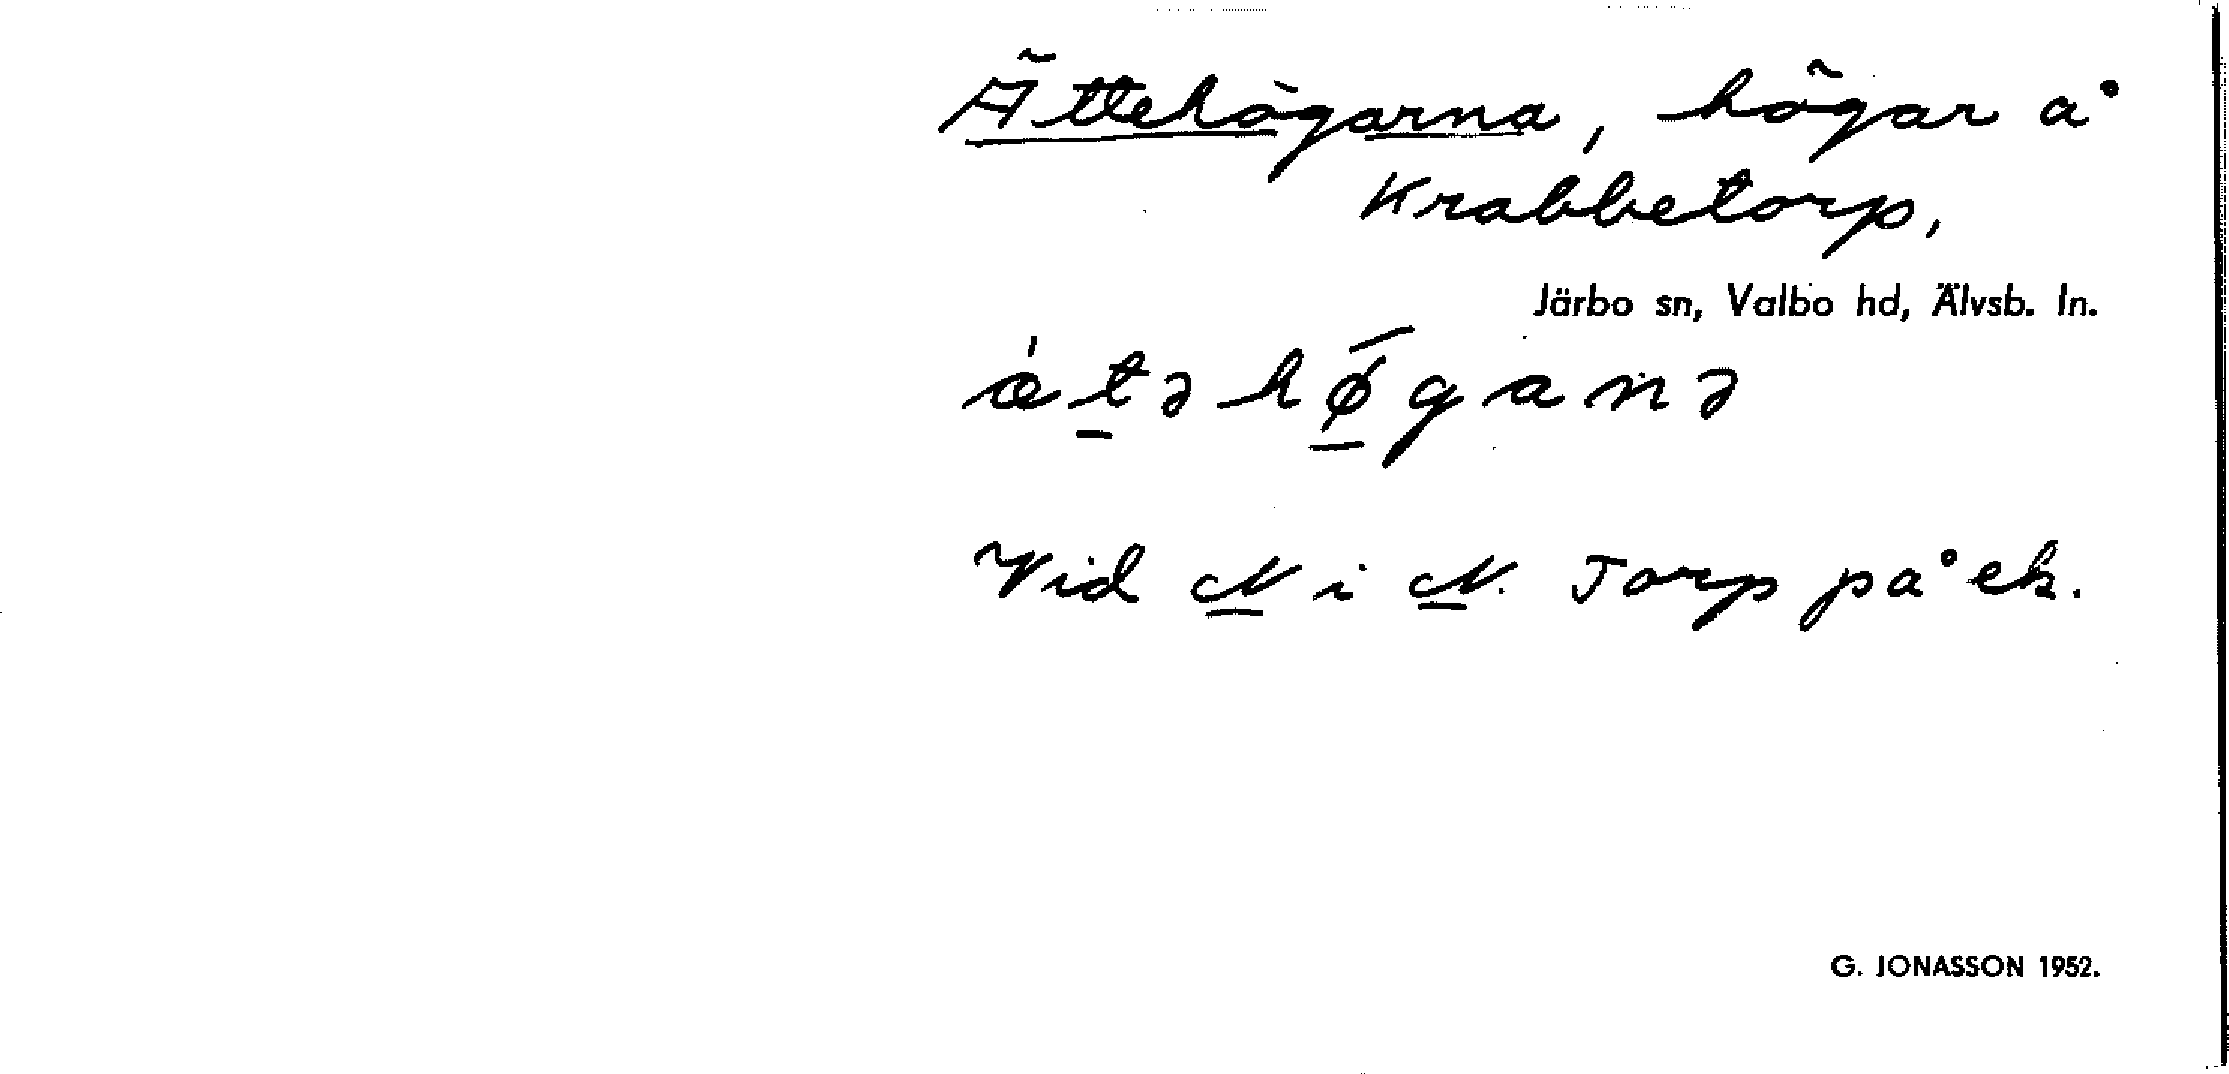 Ättehögarna, högar å
Krabbetorp,
Järbo sn, Valbo hd, Älvsb. ln.
ǽt̲əhø̲̄ganə
Vid N̲ i N̲. Torp på ek.
G. JONASSON 1952.